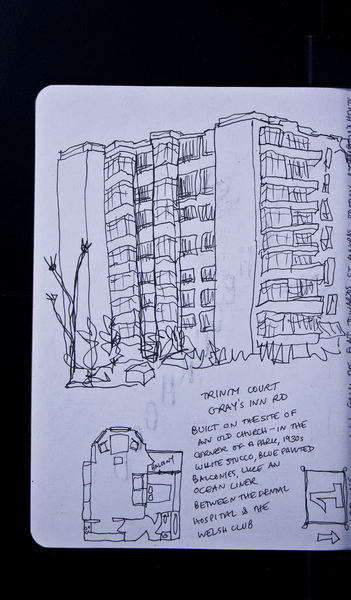 TRINITY COURT
GRAY'S INN RD
BUILT ON THE SITE OF
AN OLD CHURCH - IN THE
CORNER OF A PARK, 1930s
WHITE STUCCO, BLUE PAINTED
BALCONIES, LIKE AN
OCEAN LINER
BETWEEN THE DENTAL
HOSPITAL & THE
WELSH CLUB
BALCONY
1
OF FLAT TOWARDS ST